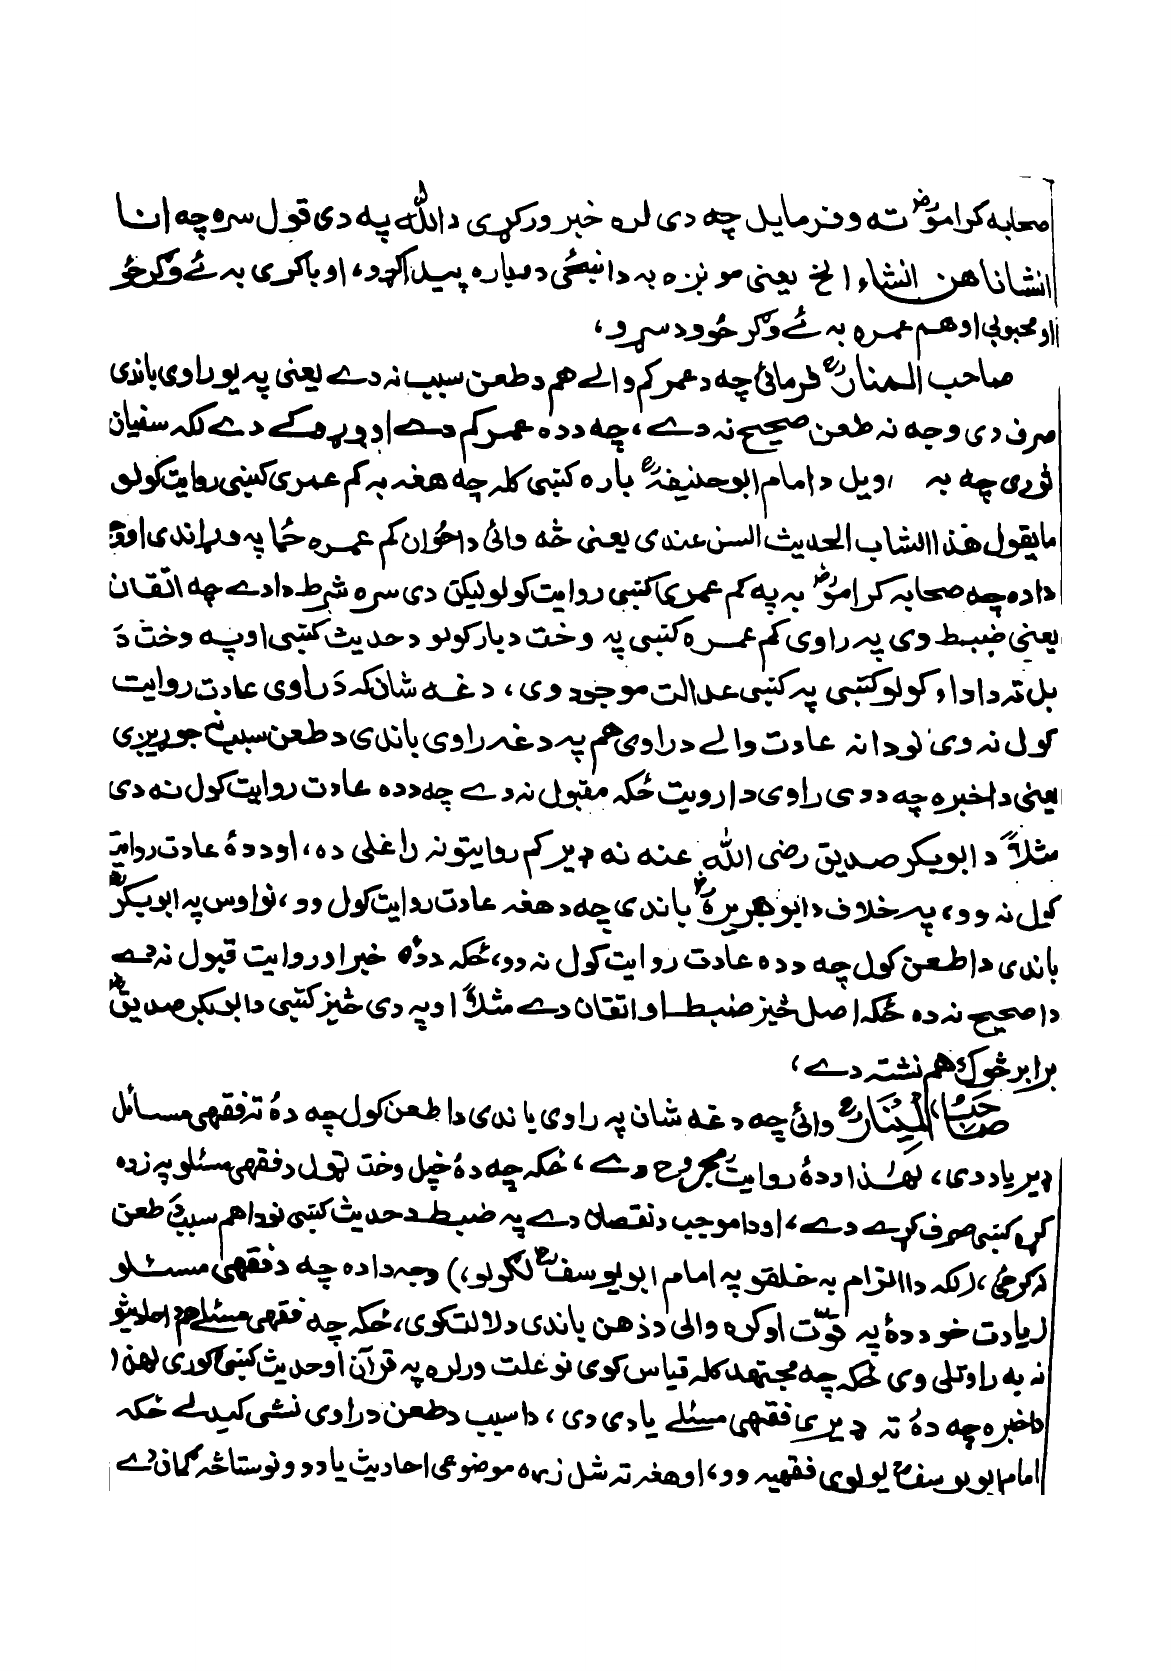 صحابه کراموؓ ته وفرمایل چه دی لره خبر ورکړی دالله په دی قول سره چه انا
انشاناهن انشاء الخ یعنی مونږه به دا ښځی دوباره پیدا کړو، او باکری به ئے وګرځو
او محبوبی او هم عمره به ئے وګرځوو د سړو،
صاحب المنارؒ فرمائی چه د عمر کم والے هم د طعن سبب نه دے یعنی په یو راوی باندی
صرف دی وجه نه طعن صحیح نه دے، چه د ده عمر کم دے او وړوکے دے لکه سفیان
ثوری چه به ویل د امام ابوحنیفهؒ باره کښی کله چه هغه به کم عمری کښی روایت کولو
مایقول هذا الشاب الحدیث السن عندی یعنی څه وائی دا ځوان کم عمره ځما په وړاندی او وجه
داده چه صحابه کراموؓ به په کم عمری کښی روایت کولو لیکن دی سره شرط دادے چه اتقان
یعنی ضبط وی په راوی کم عمره کښی په وخت د بار کولو د حدیث کښی او په وخت دَ
بل ته دا اداء کولو کښی په کښی عدالت موجود وی، دغه شان که دَ راوی عادت روایت
کول نه وی نو دا نه عادت والے د راوی هم په دغه راوی باندی د طعن سبب نه جوړیږی
یعنی دا خبره چه ددی راوی دا روایت ځکه مقبول نه دے چه دده عادت روایت کول نه دی
مثلاً د ابوبکر صدیق رضی الله عنه نه ډیر کم روایتونه راغلی ده، او ددۀ عادت روایت
کول نه وو، په خلاف د ابوهریرهؓ باندی چه دهغه عادت روایت کول وو، نو اوس په ابوبکرؓ
باندی دا طعن کول چه دده عادت روایت کول نه وو، ځکه ددۀ خبر او روایت قبول نه دے
دا صحیح نه ده ځکه اصل څیز ضبط او اتقان دے مثلاً او په دی څیز کښی د ابوبکر صدیقؓ
برابر څوک هم نشته دے،
صاحب المنارؒ وائی چه دغه شان په راوی باندی دا طعن کول چه دۀ ته فقهی مسائل
ډیر یاد دی، لهٰذا ددۀ روایت مجروح دے، ځکه چه دۀ خپل وخت ټول د فقهی مسئلو په زده
کړه کښی صرف کړے دے، او دا موجب د نقصان دے په ضبط د حدیث کښی نو دا هم سبب دَ طعن
نه ګرځی، (لکه دا الزام به خلقو په امام ابو یوسفؒ لګولو،) وجه داده چه د فقهی مسئلو
زیادت خو ددۀ په قوّت او کره والی د ذهن باندی دلالت کوی، ځکه چه فقهی مسئلے هم احادیثو
نه به راوتلی وی ځکه چه مجتهد کله قیاس کوی نو علت ورله په قرآن او حدیث کښی ګوری لهذا
دا خبره چه دۀ ته ډیری فقهی مسئلے یادی دی، دا سبب د طعن د راوی نشی کیدلے ځکه
امام ابو یوسفؒ یو لوی فقهیه وو، او هغه ته شل زره موضوعی احادیث یاد وو نو ستا څه ګمان دے